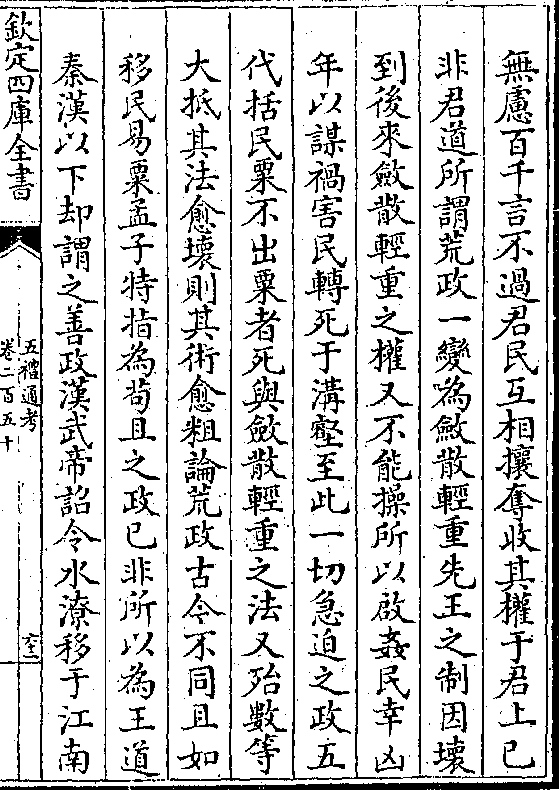 無慮百千言不過君民互相攘奪收其權于君上已
非君道所謂荒政一變為斂散輕重先王之制因壞
到後來斂散輕重之權又不能操所以啟姦民幸凶
年以謀禍害民轉死于溝壑至此一切急迫之政五
代括民粟不出粟者死與斂散輕重之法又殆數等
大抵其法愈壞則其術愈粗論荒政古今不同且如
移民易粟孟子特指為茍且之政已非所以為王道
秦漢以下却謂之善政漢武帝詔令水潦移于江南
欽定四庫全書
五禮通考
卷二百五十
六十二